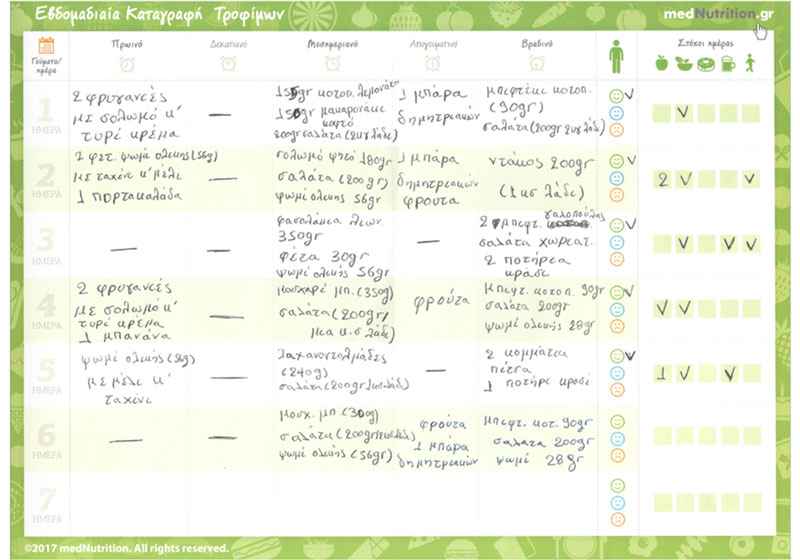 Εβδομαδιαία Καταγραφή Τροφίμων
medNutrition.gr
Γεύματα/
ημέρα
Πρωινό
Δεκατιανό
Μεσημεριανό
Απογευματινό
Βραδινό
Στόχοι ημέρας
1
ΗΜΕΡΑ
2 φρυγανιές
με σολωμό κ'
τυρί κρέμα
—
150gr κοτοπ. λεμονάτο
150gr μακαρονάκι
κοφτό
200gr σαλάτα (2κγ λάδι)
1 μπάρα
δημητριακών
μπιφτέκι κοτοπ.
(90gr)
σαλάτα (200gr 2κγ λάδι)
2
ΗΜΕΡΑ
2 φετ. ψωμί ολικής (56g)
με ταχίνι κ' μέλι
1 πορτοκαλάδα
—
σολωμό ψητό 180gr
σαλάτα (200gr)
ψωμί ολικης 56gr
1 μπάρα
δημητριακών
φρουτα
ντάκος 200gr
(1 κσ λάδι)
2
3
ΗΜΕΡΑ
—
—
φασολάκια
350gr
φέτα 30gr
ψωμί ολικης 56gr
—
2 μπιφτ. γαλοπούλας
σαλάτα χωριατ.
2 ποτήρια
κρασί
4
ΗΜΕΡΑ
2 φρυγανιές
με σολωμό κ'
τυρί κρέμα
1 μπανάνα
—
μοσχάρι μπ. (350g)
σαλάτα (200gr/
μια κ.σ λάδι)
φρούτα
μπιφτ. κοτοπ. 90gr
σαλάτα 200gr
ψωμί ολικής 28gr
5
ΗΜΕΡΑ
ψωμί ολικής (56g)
με μέλι κ'
ταχίνι
—
λαχανοντολμάδες
(240g)
σαλάτα (200gr 1κσ λάδι)
—
2 κομμάτια
πίτσα
1 ποτήρι κρασί
1
6
ΗΜΕΡΑ
—
—
μοσχ. μπ (300g)
σαλάτα (200gr/2κσ λάδι)
ψωμί ολικής (56gr)
φρούτα
1 μπάρα
δημητριακών
μπιφτ. κοτ. 90gr
σαλατα 200gr
ψωμί 28gr
7
ΗΜΕΡΑ
©2017 medNutrition. All rights reserved.